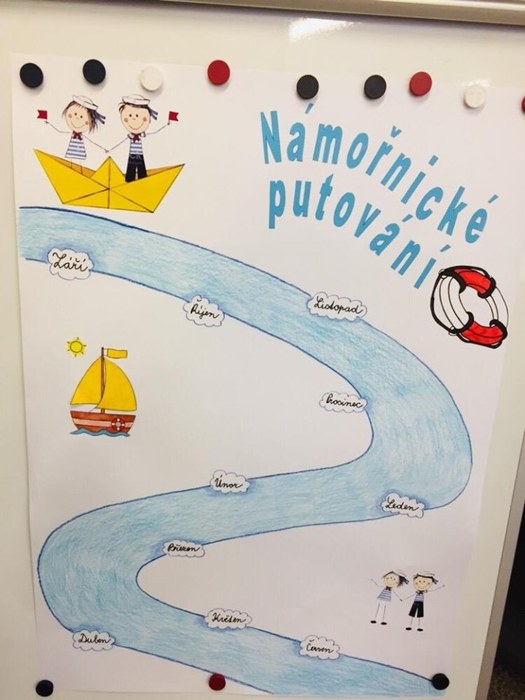 Námořnické
putování
Září
Říjen
Listopad
Prosinec
Leden
Únor
Březen
Duben
Květen
Červen